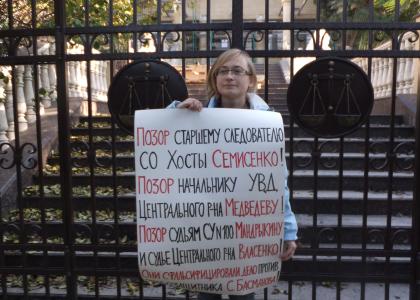 Позор старшему следователю
со Хосты Семисенко!
Позор начальнику УВД
Центрального р-на Медведеву!
Позор судьям СУ№100 Мандрыкину
и судье Центрального р-на Власенко!
Они сфальсифицировали дело против
защитника С. Басманова